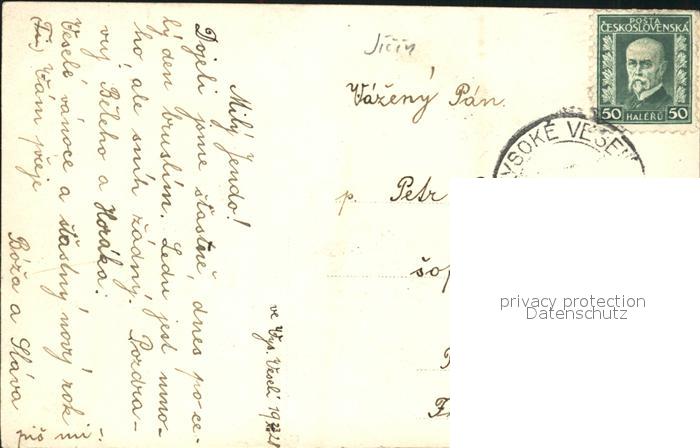 Milý Jendo!
Dojeli jsme šťastně, dnes po ce-
lý den bruslím. Ledu jest mno-
ho, ale sníh žádný. Pozdra-
vuj Běleho a Horáka.
Veselé vánoce a šťastný nový rok
Vám přeje
Bóža a Sláva
piš mi.
ve Vys. Veselí 19 23/XII 28
Jičín
Vážený Pán
p. Petr
šof
POŠTA
ČESKOSLOVENSKÁ
50 HALÉŘŮ 50
VYSOKÉ VESELÍ
privacy protection
Datenschutz